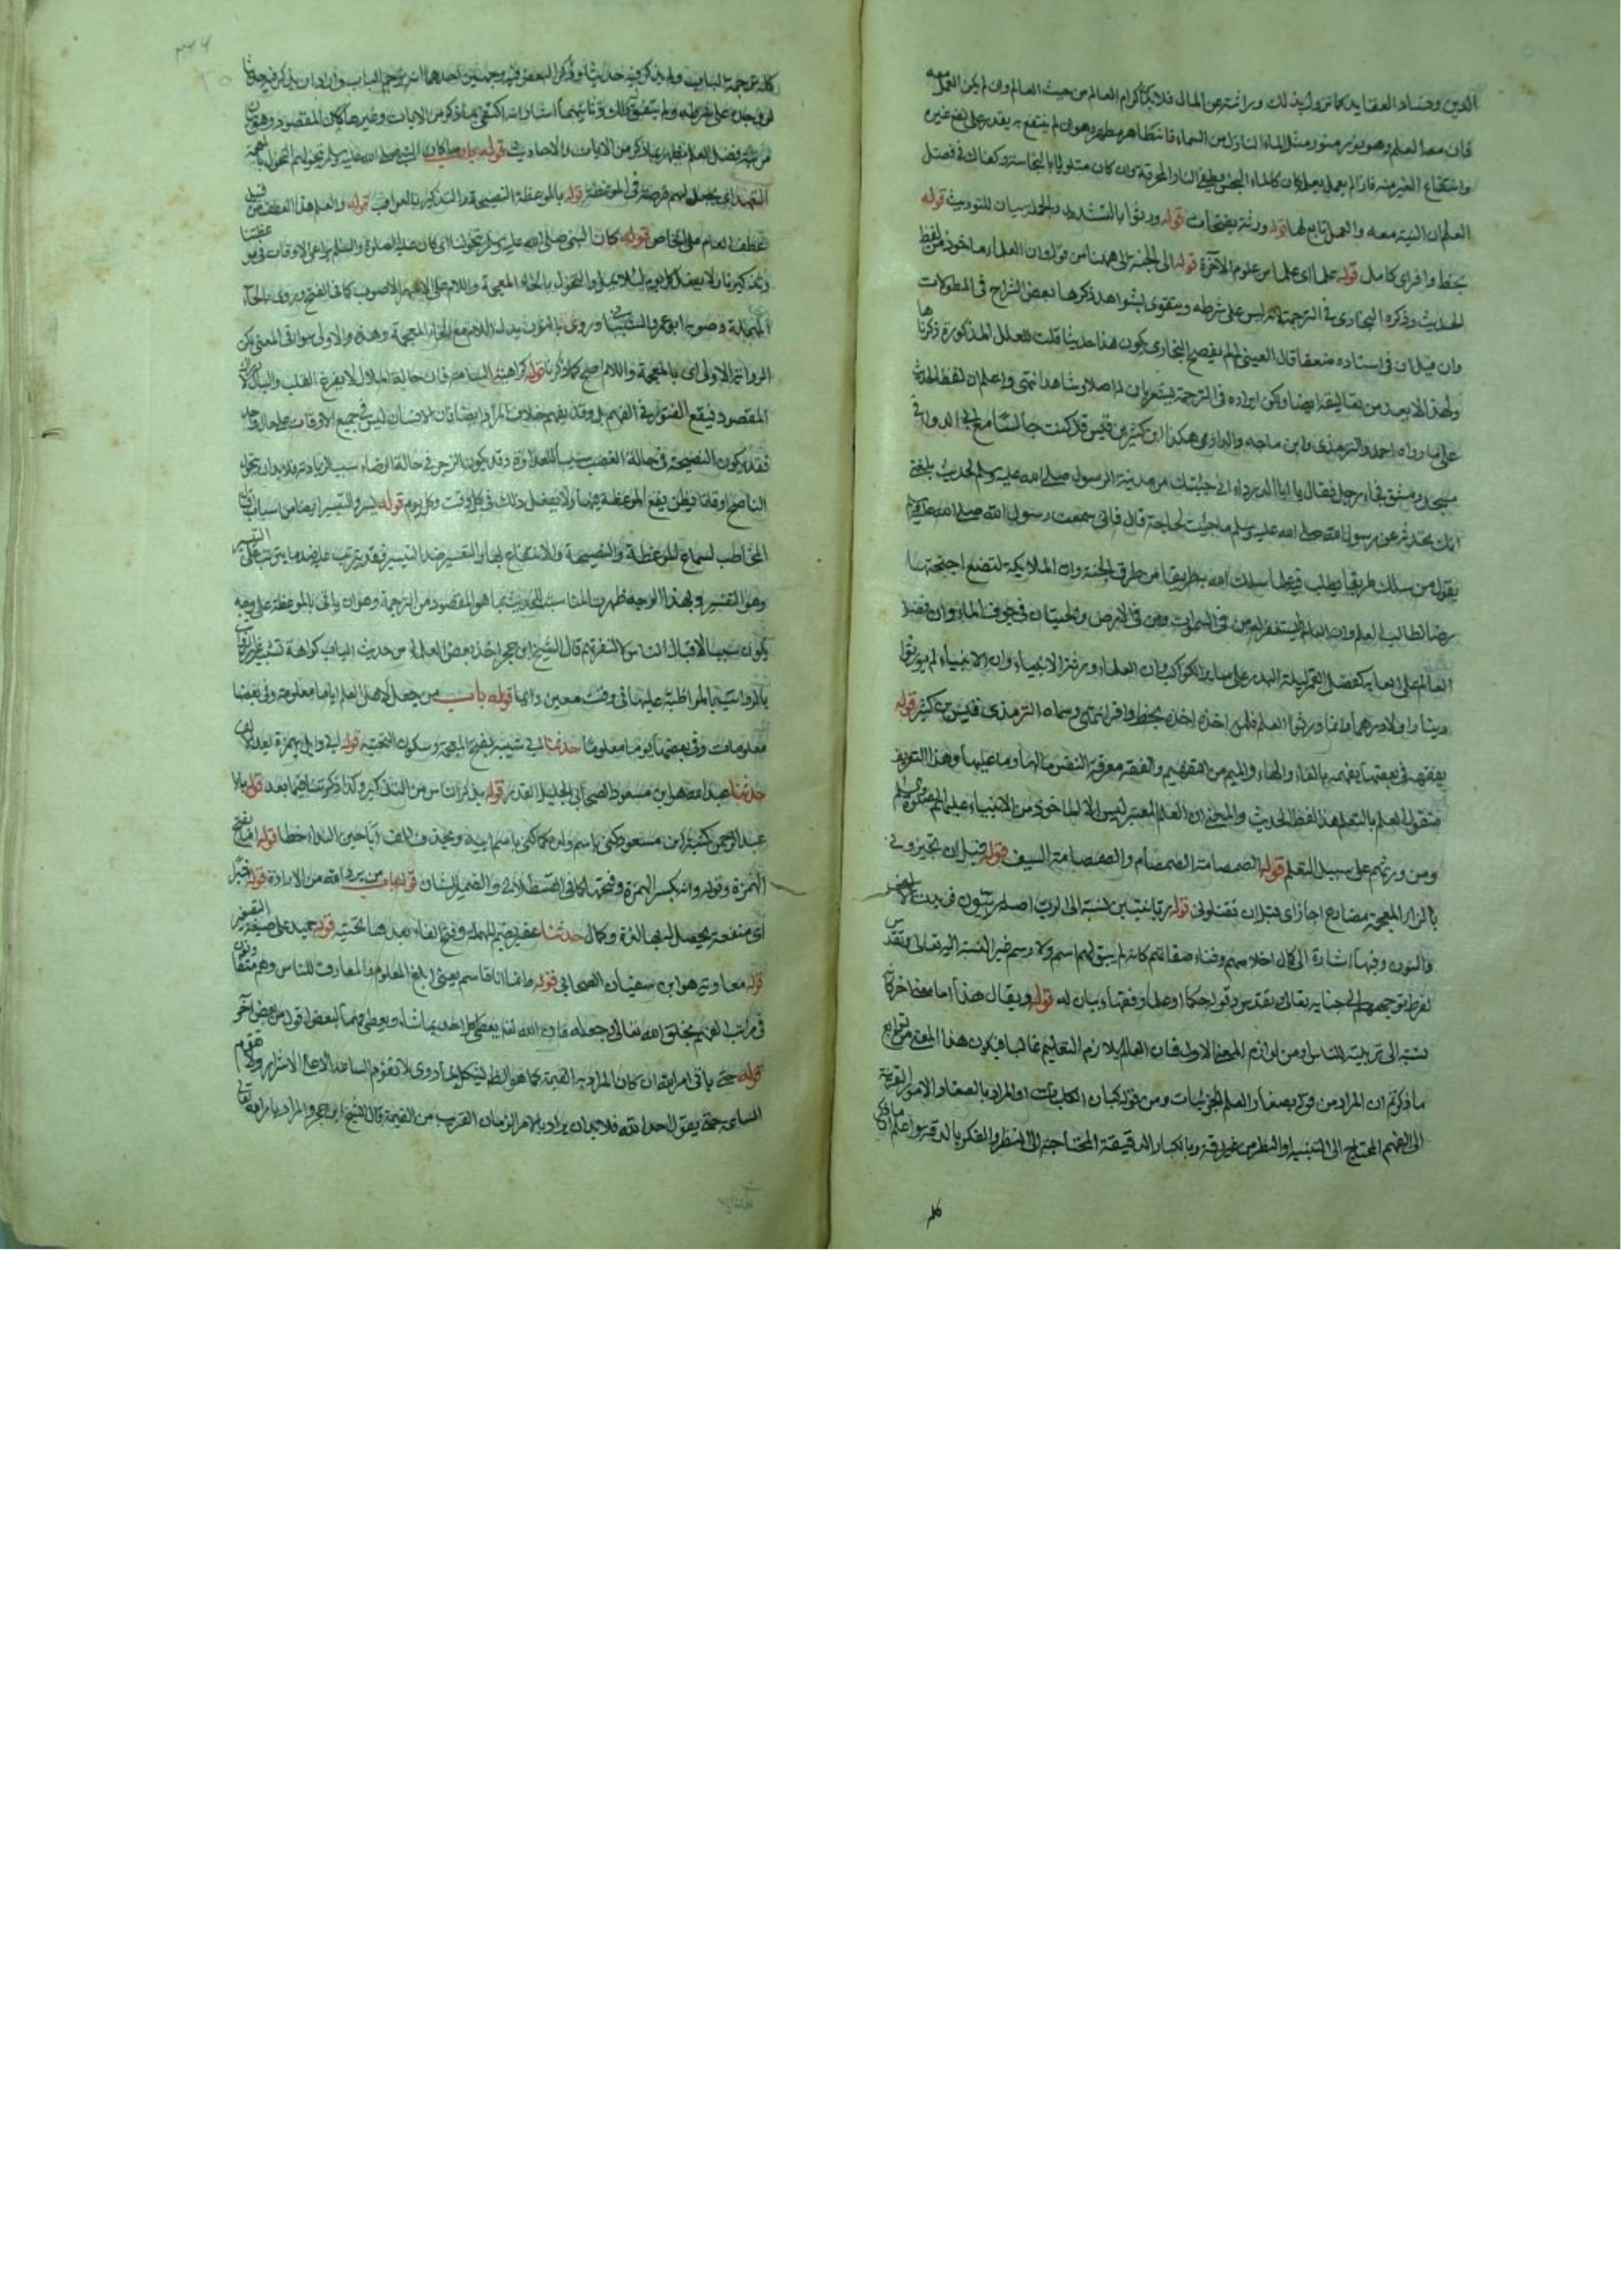 الدين وفساد العقايد كما تزول بذلك وراثته عن المال فلا بد اكرام العالم من حيث العالم وان لم يكن العمل معه
فان معه العلم وهو نور مثل الماء النازل من السماء فانه طاهر مطهر وهو ان لم ينتفع به يقدر على نفع غيره
وانتفاع الغير منه فاذا لم يعمل بعلمه كان كالماء النجس يطفئ النار المحرقة وان كان متلوثا بالنجاسة وكفاك في فضل
العلم ان النية معه والعمل تابع لها قوله ورثة بفتحات قوله ورثوا بالتشديد والجملة بيان للتوريث قوله
بحظ وافر اى كامل قوله علما اى علما من علوم الآخرة قوله الى الجنة الى هنا من قوله وان العلماء ماخوذ من لفظ
الحديث وذكره البخارى فى الترجمة لانه ليس على شرطه ويتقوى بشواهد ذكرها بعض الشراح فى المطولات
وان قيل ان فى اسناده ضعفا قال العينى لم يفصح البخارى بكون هذا حديثا قلت للعلل المذكورة ذكرناها
ولهذا لا يعد من تعاليقه ايضا ولكن ايراده فى الترجمة يشعر بان له اصلا وشاهدا انتهى واعلم ان لفظ الحديث
على ما رواه احمد والترمذى وابن ماجه والدارمى هكذا ابن كثير بن قيس قال كنت جالسا مع ابى الدرداء فى
مسجد دمشق فجاءه رجل فقال يا ابا الدرداء انى جئتك من مدينة الرسول صلى الله عليه وسلم لحديث بلغنى
انك تحدثه عن رسول الله صلى الله عليه وسلم ما جئت لحاجة قال فانى سمعت رسول الله صلى الله عليه وسلم
يقول من سلك طريقا يطلب فيه علما سلك الله به طريقا من طرق الجنة وان الملايكة لتضع اجنحتها
رضا لطالب العلم وان العالم ليستغفر له من فى السموات ومن فى الارض والحيتان فى جوف الماء وان فضل
العالم على العابد كفضل القمر ليلة البدر على سائر الكواكب وان العلماء ورثة الانبياء وان الانبياء لم يورثوا
دينارا ولا درهما وانما ورثوا العلم فمن اخذه اخذه بحظ وافر انتهى وسماه الترمذى قيس بن كثير قوله
يفقهه فى بعضها يفهمه بالفاء والهاء والميم من التفهيم والفقه معرفة النفس ما لها وما عليها وهذا التعريف
منقول العلم بالتعلم هذا لفظ الحديث والمعنى ان العلم المعتبر ليس الا لماخوذ من الانبياء عليهم الصلوة والسلم
ومن ورثتهم على سبيل التعلم قوله الصمصامة الصمصام والصمصامة السيف قوله قبل ان تجيزوا
بالزاء المعجمة مضارع اجاز اى قبل ان تقتلونى قوله ربانيين نسبة الى الرب اصله ربيون فزيدت الالف
والنون وفيها اشارة الى كمال اخلاصهم وفناء صفاتهم كانه لم يبق لهم اسم ولا رسم غير النسبة اليه تعالى وتقدس
لفرط توجههم الى جنابه تعالى وتقدس وقوله حكماء وعلماء وفقهاء بيان له قوله ويقال هذا معنى اخر كان
نسبة الى تربية للناس من لوازم المعنى الاول فان العالم يلازم التعليم غالبا فيكون هذا المعنى من توابع
ما ذكر ثم ان المراد من قوله بصغار العلم الجزئيات ومن قوله كباره الكليات او المراد بالصغار الامور القريبة
الى الفهم المحتاج الى التنبيه او النظر من غير دقة وبالكبار الدقيقة المحتاجة الى النظر والفكر بالدقة واعلم ان ما ذكر
كله
كله ترجمة الباب ولم يذكر فيه حديثا وذكر البعض فيه وجهين احدهما انه ترجم الباب واراد ان يذكر فيه حديثا
من شرف فضل العلم فيظهر بما ذكر من الايات والاحاديث قوله باب ما كان النبى صلى الله عليه وسلم يتخولهم
التعهد اى يجعل لهم فرصة فى الموعظة قوله بالموعظة النصيحة والتذكير بالعواقب قوله والعلم هذا العطف من قبيل
عطف العام على الخاص قوله كان النبى صلى الله عليه وسلم يتخولنا اى كان عليه الصلوة والسلم يراعى الاوقات فى
وتذكيرنا ولا يفعل كل يوم لئلا يمل والتخول بالخاء المعجمة واللام هو الاصوب كما فى الفتح ويروى بالحاء
المهملة وصوبه ابو عمرو الشيبانى وروى بالنون بدل اللام مع الخاء المعجمة وهذه والاولى سواء فى المعنى لكن
الرواية الاولى اى بالمعجمة واللام اصح كما ذكرنا قوله كراهية السآمة فان حالة الملال لا يفرغ القلب والبال لادراك
المقصود فيقع الفتور فى الفهم بل وقد يفهم خلاف المراد ايضا فان الانسان ليس فى جميع الاوقات على حال واحد
فقد يكون النصيحة فى حالة الغضب سببا للعداوة وقد يكون الزجر فى حالة الرضاء سببا لزيادته فلا بد ان يتحرى
الناصح اوقاتا يظن نفع الموعظة فيها ولا يفعل ذلك فى كل وقت وكل يوم قوله يسر والتيسير ايضا من اسباب
المخاطب لسماع الموعظة والنصيحة والانتفاع بها والتعسير ضد التيسير فقد يترتب عليه ضد ما يترتب على التيسير
وهو التنفير وبهذا الوجه ظهرت المناسبة للحديث بما هو المقصود من الترجمة وهو ان ياتى بالموعظة على وجه
يكون سببا لاقبال الناس لا لنفرتهم قال الشيخ ابن حجر اخذ بعض العلماء من حديث الباب كراهة تشبيه غير الرواتب
بالرواتب بالمواظبة عليها فى وقت معين دائما قوله باب من جعل لاهل العلم اياما معلومة وفى بعضها
معلومات وفى بعضها يوما معلوما حدثنا ابى شيبة بفتح المعجمة وسكون التحتية قوله ابى وايل بهمزة بعد الالف
حدثنا عبد الله هو ابن مسعود الصحابى الجليل القدر قوله يذكر الناس من التذكير وكذا ذكرتنا فيما بعد قوله يا ابا
عبد الرحمن كنية ابن مسعود كنى باسم ولده كما كنى باسم ابيه ويحذف الف ابا حين النداء خطا قوله اما بفتح
الهمزة وقوله وانه بكسر الهمزة وفتحها كما فى القسطلانى والضمير للشان قوله باب من يرد الله من الارادة قوله خيرا
اى منفعة يحصل لديها اللذة والكمال حدثنا عفير بضم المهملة وفتح الفاء بعدها تحتية قوله حميد على صيغة التصغير
قوله معاوية هو ابن سفيان الصحابى قوله وانما انا قاسم يعنى ابلغ العلوم والمعارف للناس وهم متفاوتون
فى مراتب الفهم بخلق الله تعالى وجعله فان الله تعالى يعطى كل احد بما شاء ويعطى فهما لبعض فوق بعض آخر
قوله حتى ياتى امر الله ان كان المراد به القيمة كما هو الظاهر فيشكل بما روى لا تقوم الساعة الا على الاشرار ولا تقوم
الساعة حتى يقول احد الله فلا بد ان يراد بالامر الزمان القريب من القيمة قال الشيخ ابن حجر والمراد بامر الله تعالى